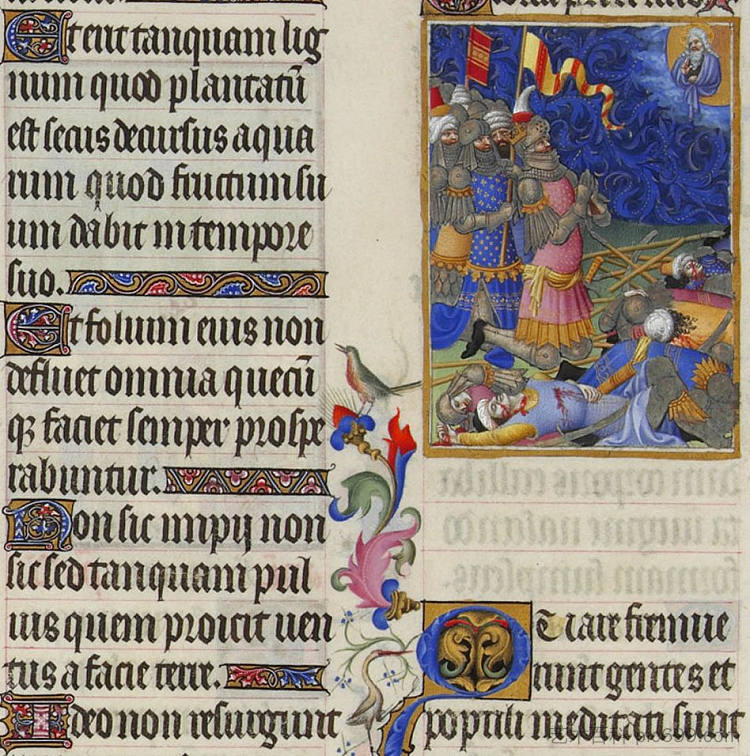 Et erit tanquam lig
num quod plantatū
est secus decursus aqua
rum quod fructum su
um dabit in tempore
suo.
Et folium eius non
defluet omnia quecū
qȝ faciet semper prospe
rabuntur.
Non sic impij non
sic sed tanquam pul
uis quem proicit uen
tus a facie terre.
Ideo non resurgunt
Quare fremue
runt gentes et
populi meditati sunt